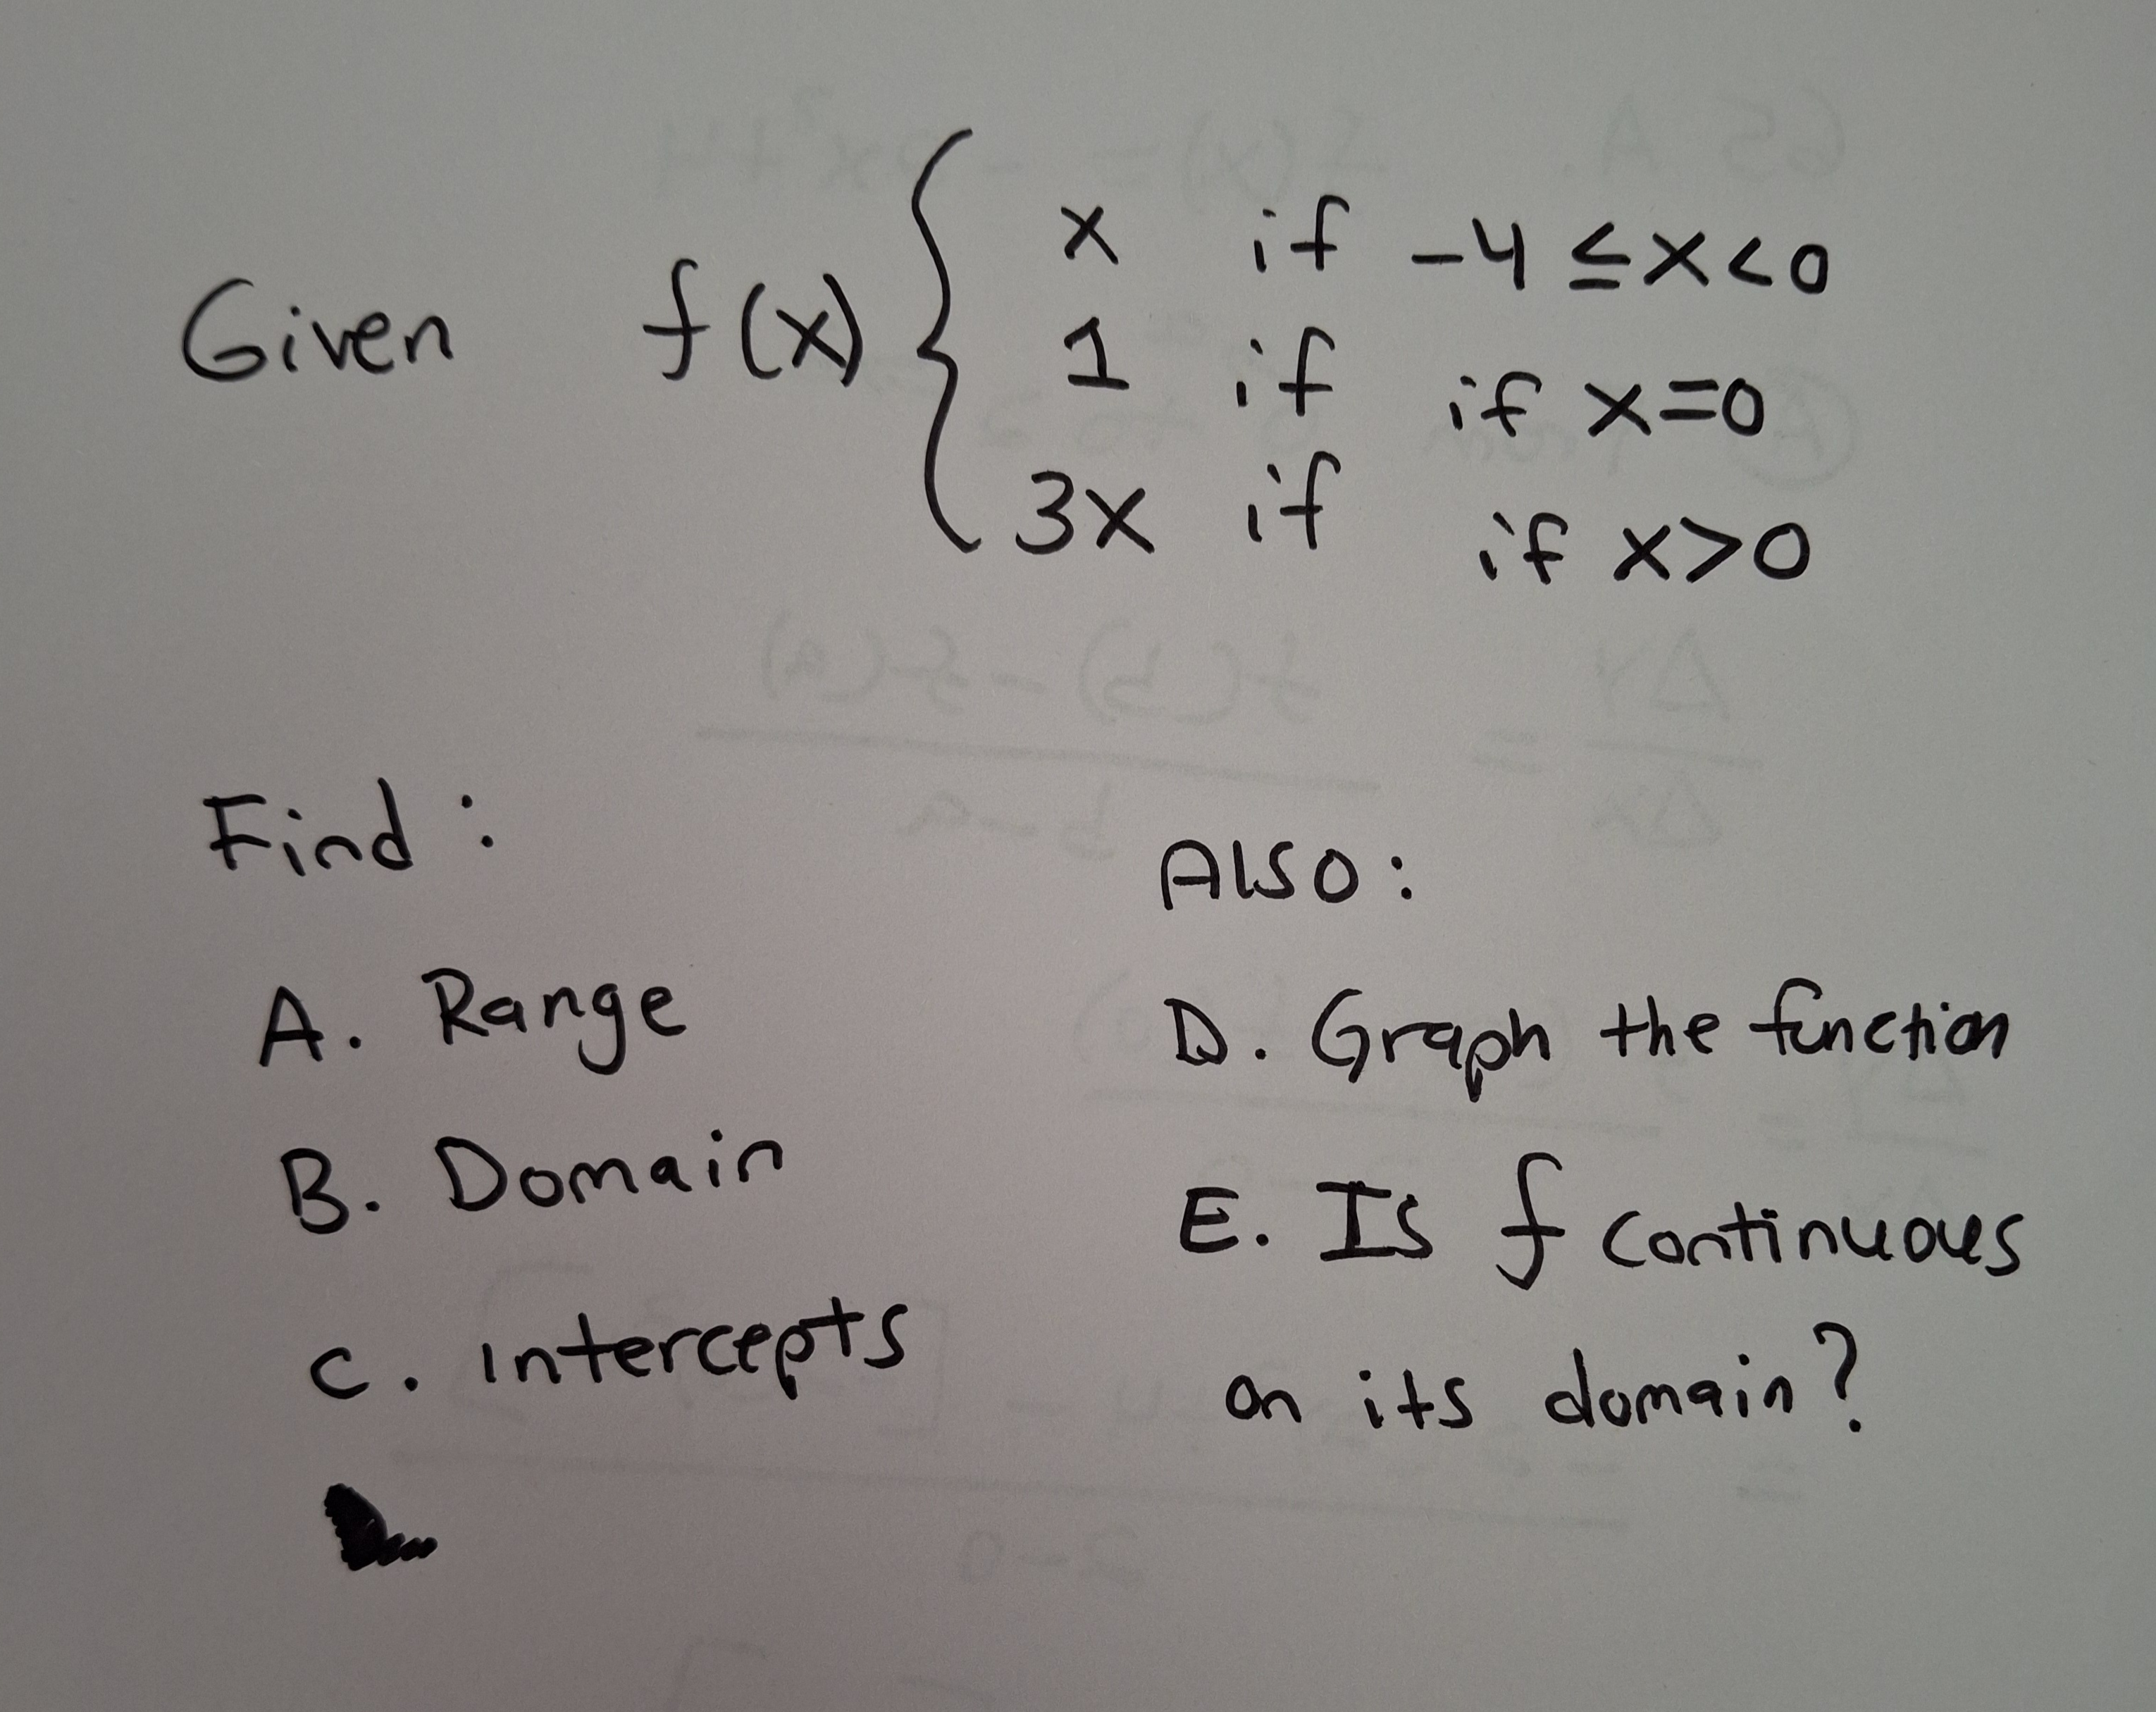 Given f(x) { x if -4 ≤ x < 0
1 if if x=0
3x if if x>0
Find :
A. Range
B. Domain
C. intercepts
Also :
D. Graph the function
E. Is f continuous
on its domain?